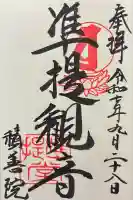 奉拝
令和七年九月二十八日
準提観音
積善院